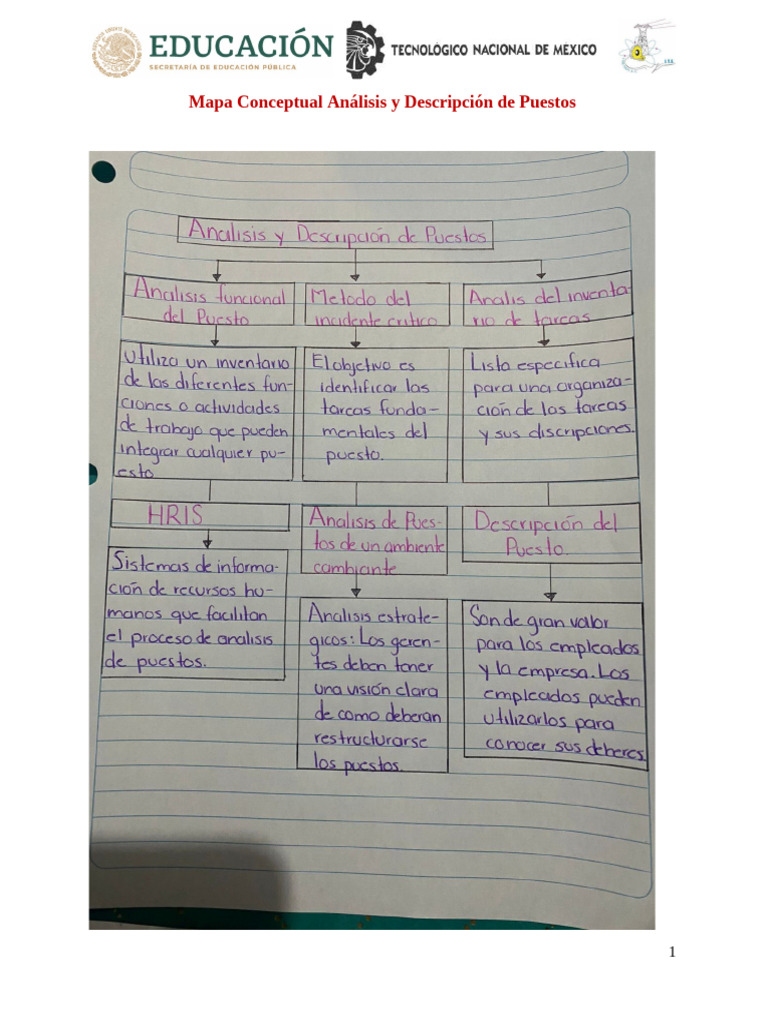 EDUCACIÓN
SECRETARÍA DE EDUCACIÓN PÚBLICA
TECNOLÓGICO NACIONAL DE MEXICO
Mapa Conceptual Análisis y Descripción de Puestos
Analisis y Descripción de Puestos
Analisis funcional
del Puesto
Metodo del
incidente critico
Analis del inventa-
rio de tareas
Utiliza un inventario
de las diferentes fun-
ciones o actividades
de trabajo que pueden
integrar cualquier pu-
esto
El objetivo es
identificar las
tareas funda-
mentales del
puesto.
Lista especifica
para una organiza-
ción de las tareas
y sus discripciones.
HRIS
Analisis de Pues-
tos de un ambiente
cambiante
Descripción del
Puesto.
Sistemas de informa-
ción de recursos hu-
manos que facilitan
el proceso de analisis
de puestos.
Analisis estrate-
gicos: Los geren-
tes deben tener
una visión clara
de como deberan
restructurarse
los puestos.
Son de gran valor
para los empleados
y la empresa. Los
empleados pueden
utilizarlos para
conocer sus deberes
1